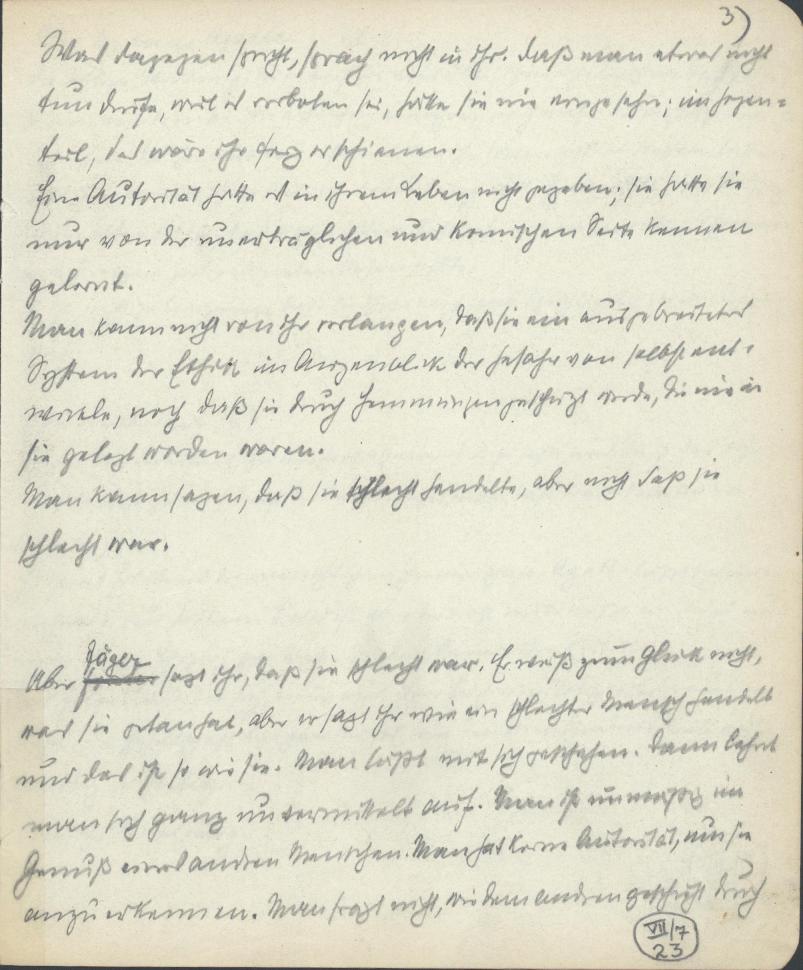 3)
Was dagegen spricht, sprach nicht in ihr. Daß man etwas nicht
tun dürfe, weil es verboten sei, hätte sie nie eingesehn; im Gegen=
teil, das wäre ihr feig erschienen.
Eine Autorität hatte es in ihrem Leben nicht gegeben; sie hatte sie
nur von der unerträglichen und komischen Seite kennen
gelernt.
Man kann nicht von ihr verlangen, daß sie ein ausgebreitetes
System der Ethik im Augenblick der Gefahr von selbst ent-
wickle, noch daß sie durch Hemmungen geschützt werde, die nie in
sie gelegt worden waren.
Man kann sagen, daß sie schlecht handelte, aber nicht daß sie
schlecht war.
Jäger
Aber sagt ihr, daß sie schlecht war. Er weiß zum Glück nicht,
was sie getan hat, aber er sagt ihr wie ein schlechter Mensch handelt
und das ist so wie sie. Man läßt mit sich geschehen. Dann lehnt
man sich ganz unvermittelt auf. Man ist unmäßig im
Genuß eines andren Menschen. Man hat keine Autorität, um sie
anzuerkennen. Man fragt nicht, wie dem andren geschieht durch
VII/7
23